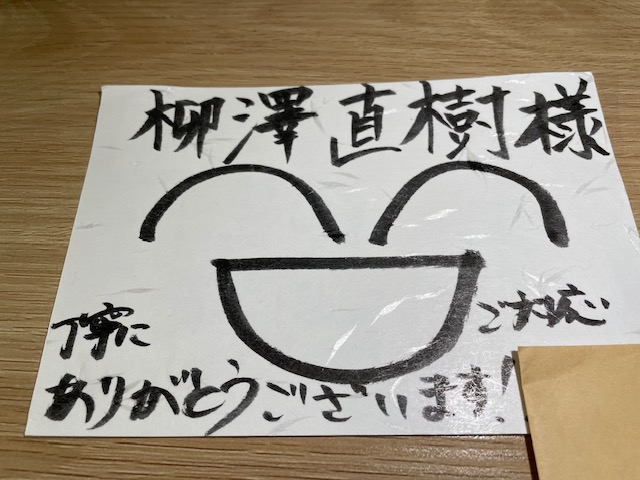 柳澤直樹様
丁寧に ご対応
ありがとうございます!